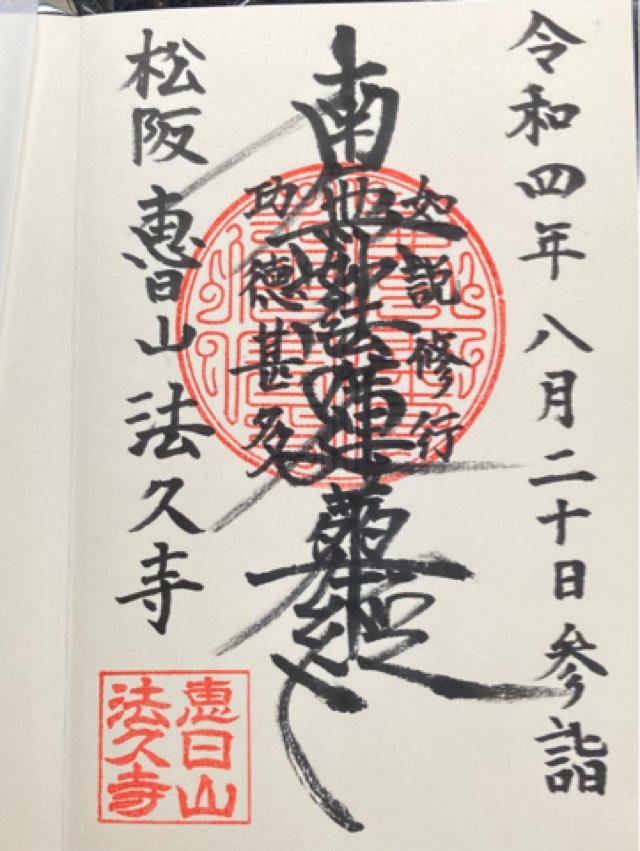 令和四年八月二十日参詣
如説修行
南無妙法蓮華経
功徳甚多
松阪 恵日山 法久寺
恵日山
法久寺